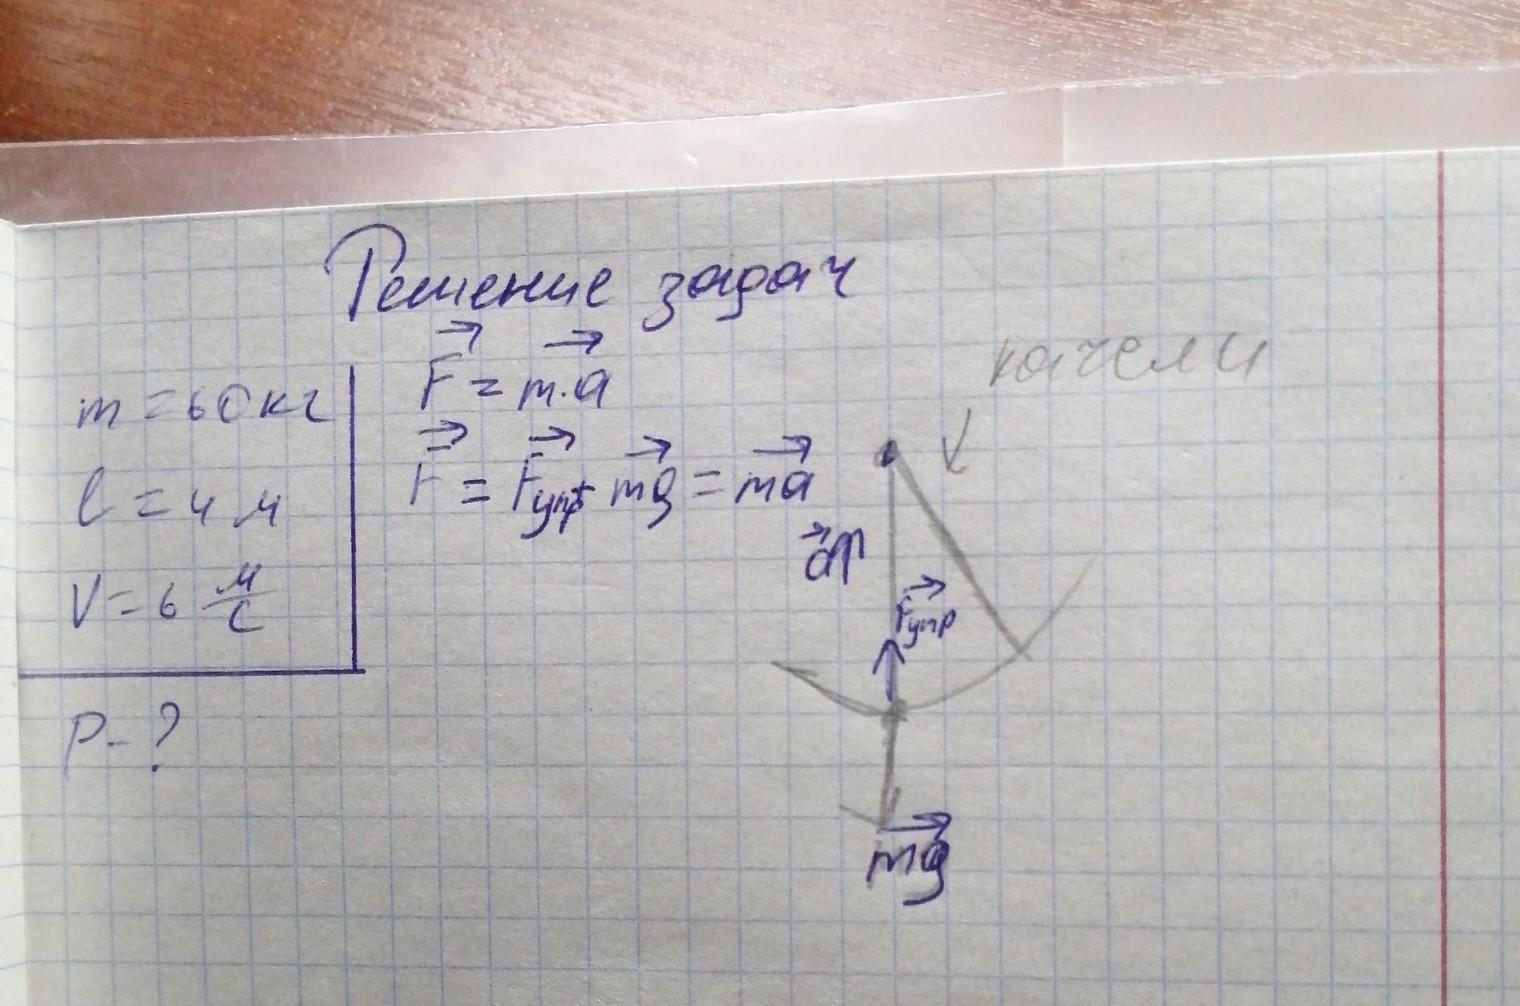 Решение задач
m = 60 кг
l = 4 м
V = 6 м/с
P - ?
F = m·a
F = Fупр + mg = ma
качели
a↑
Fупр
mg